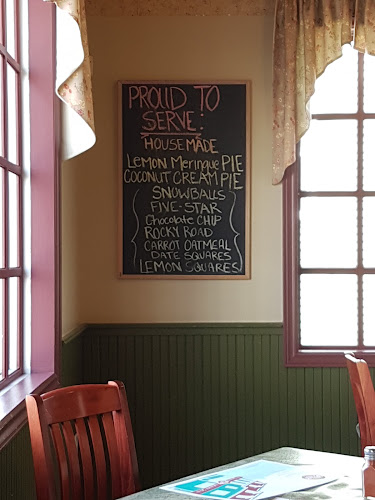 PROUD TO
SERVE:
HOUSEMADE
LEMON MERINGUE PIE
COCONUT CREAM PIE
SNOWBALLS
FIVE-STAR
CHOCOLATE CHIP
ROCKY ROAD
CARROT OATMEAL
DATE SQUARES
LEMON SQUARES